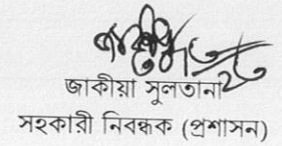 জাকীয়া সুলতানা
সহকারী নিবন্ধক (প্রশাসন)